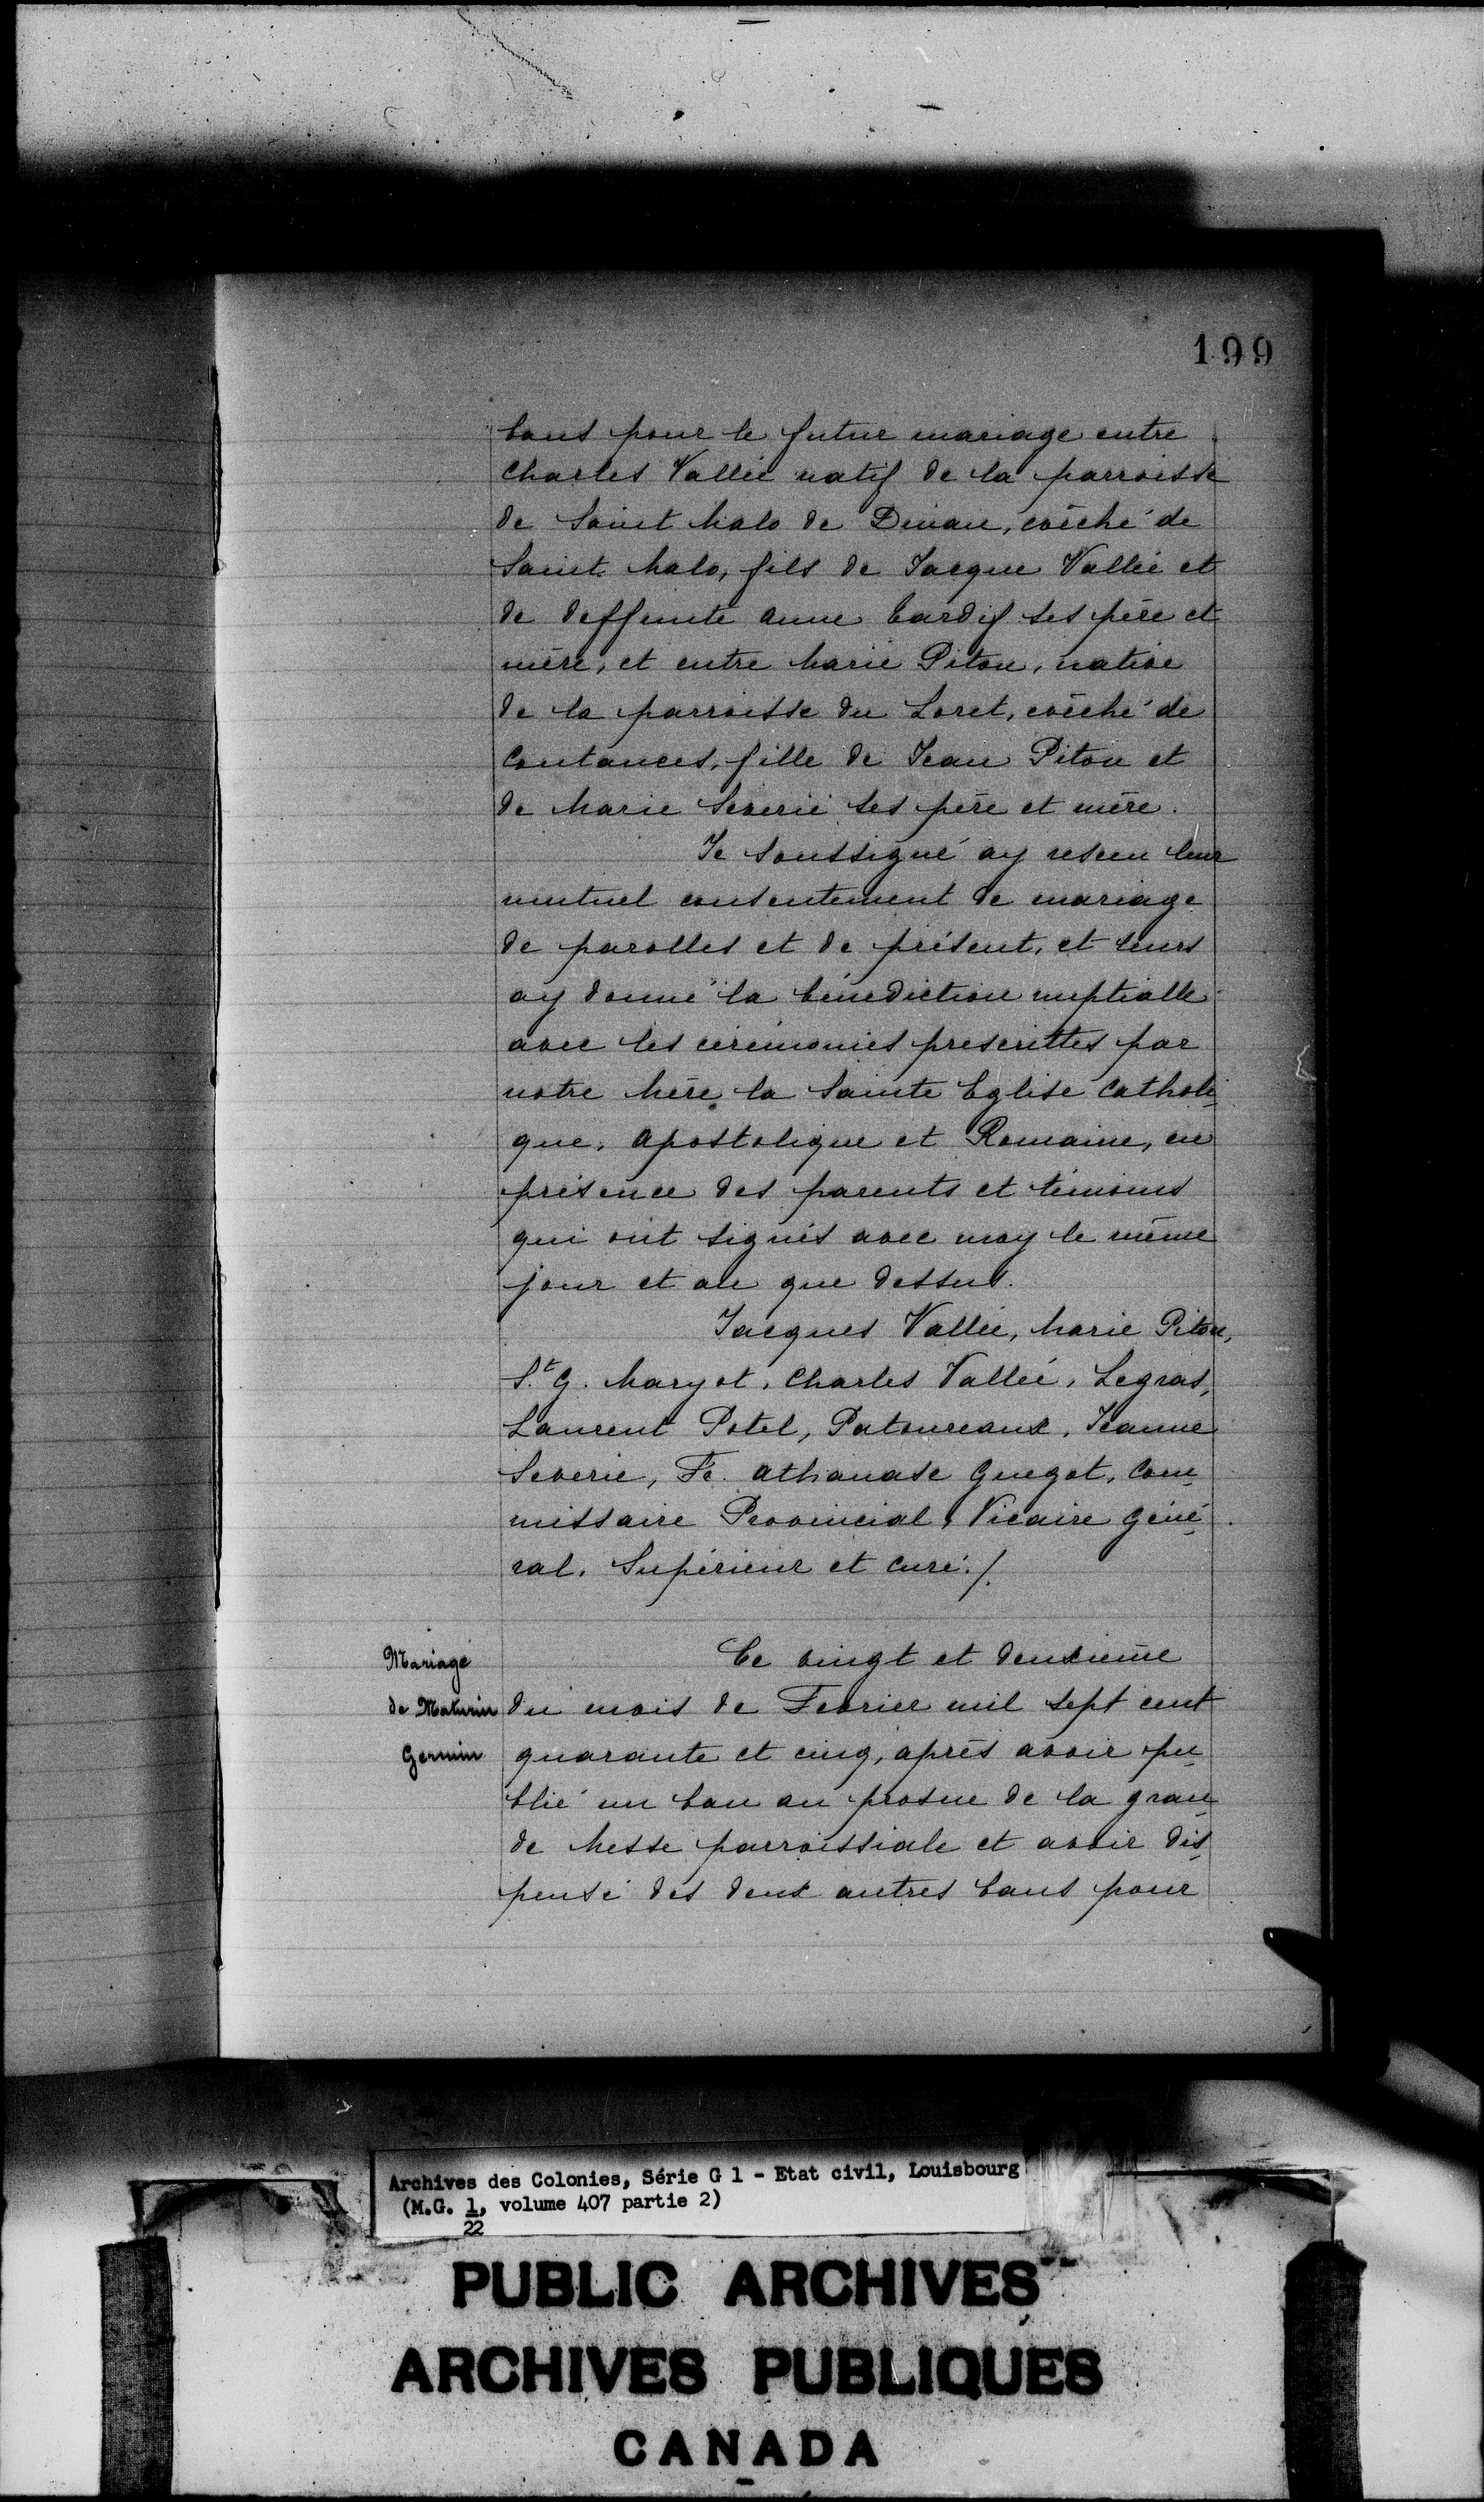 199
bans pour le futur mariage entre
Charles Vallée natif de la parroisse
de Saint Malo de Dinan, évêché de
Saint Malo, fils de Jacque Vallée et
de deffunte Anne Cardif ses père et
mère, et entre Marie Piton, native
de la parroisse du Loret, évêché de
Coutances, fille de Jean Piton et
de Marie Severie ses père et mère.
Je soussigné ay resceu leur
mutuel consentement de mariage
de parolles et de présent, et leurs
ay donné la bénediction nuptialle
avec les cérémonies prescrittes par
notre Mère la Sainte Eglise Catholi-
que, Apostolique et Romaine, en
présence des parents et témoins
qui ont signés avec moy le même
jour et an que dessus.
Jacques Vallée, Marie Piton,
St. G. Maryot, Charles Vallée, Legras,
Laurent Potel, Patoureaux, Jeanne
Severie, Fr. Athanase Guegot, Com-
missaire Provincial, Vicaire Géné-
ral, Supérieur et curé./.
Mariage
de Maturin
Germin
Ce vingt et deuxième
du mois de Fevrier mil sept cent
quarante et cinq, après avoir pu-
blié un ban au prosne de la gran-
de Messe parroissiale et avoir dis-
pensé des deux autres bans pour
Archives des Colonies, Série G 1 - Etat civil, Louisbourg
(M.G. 1, volume 407 partie 2)
22
PUBLIC ARCHIVES
ARCHIVES PUBLIQUES
CANADA